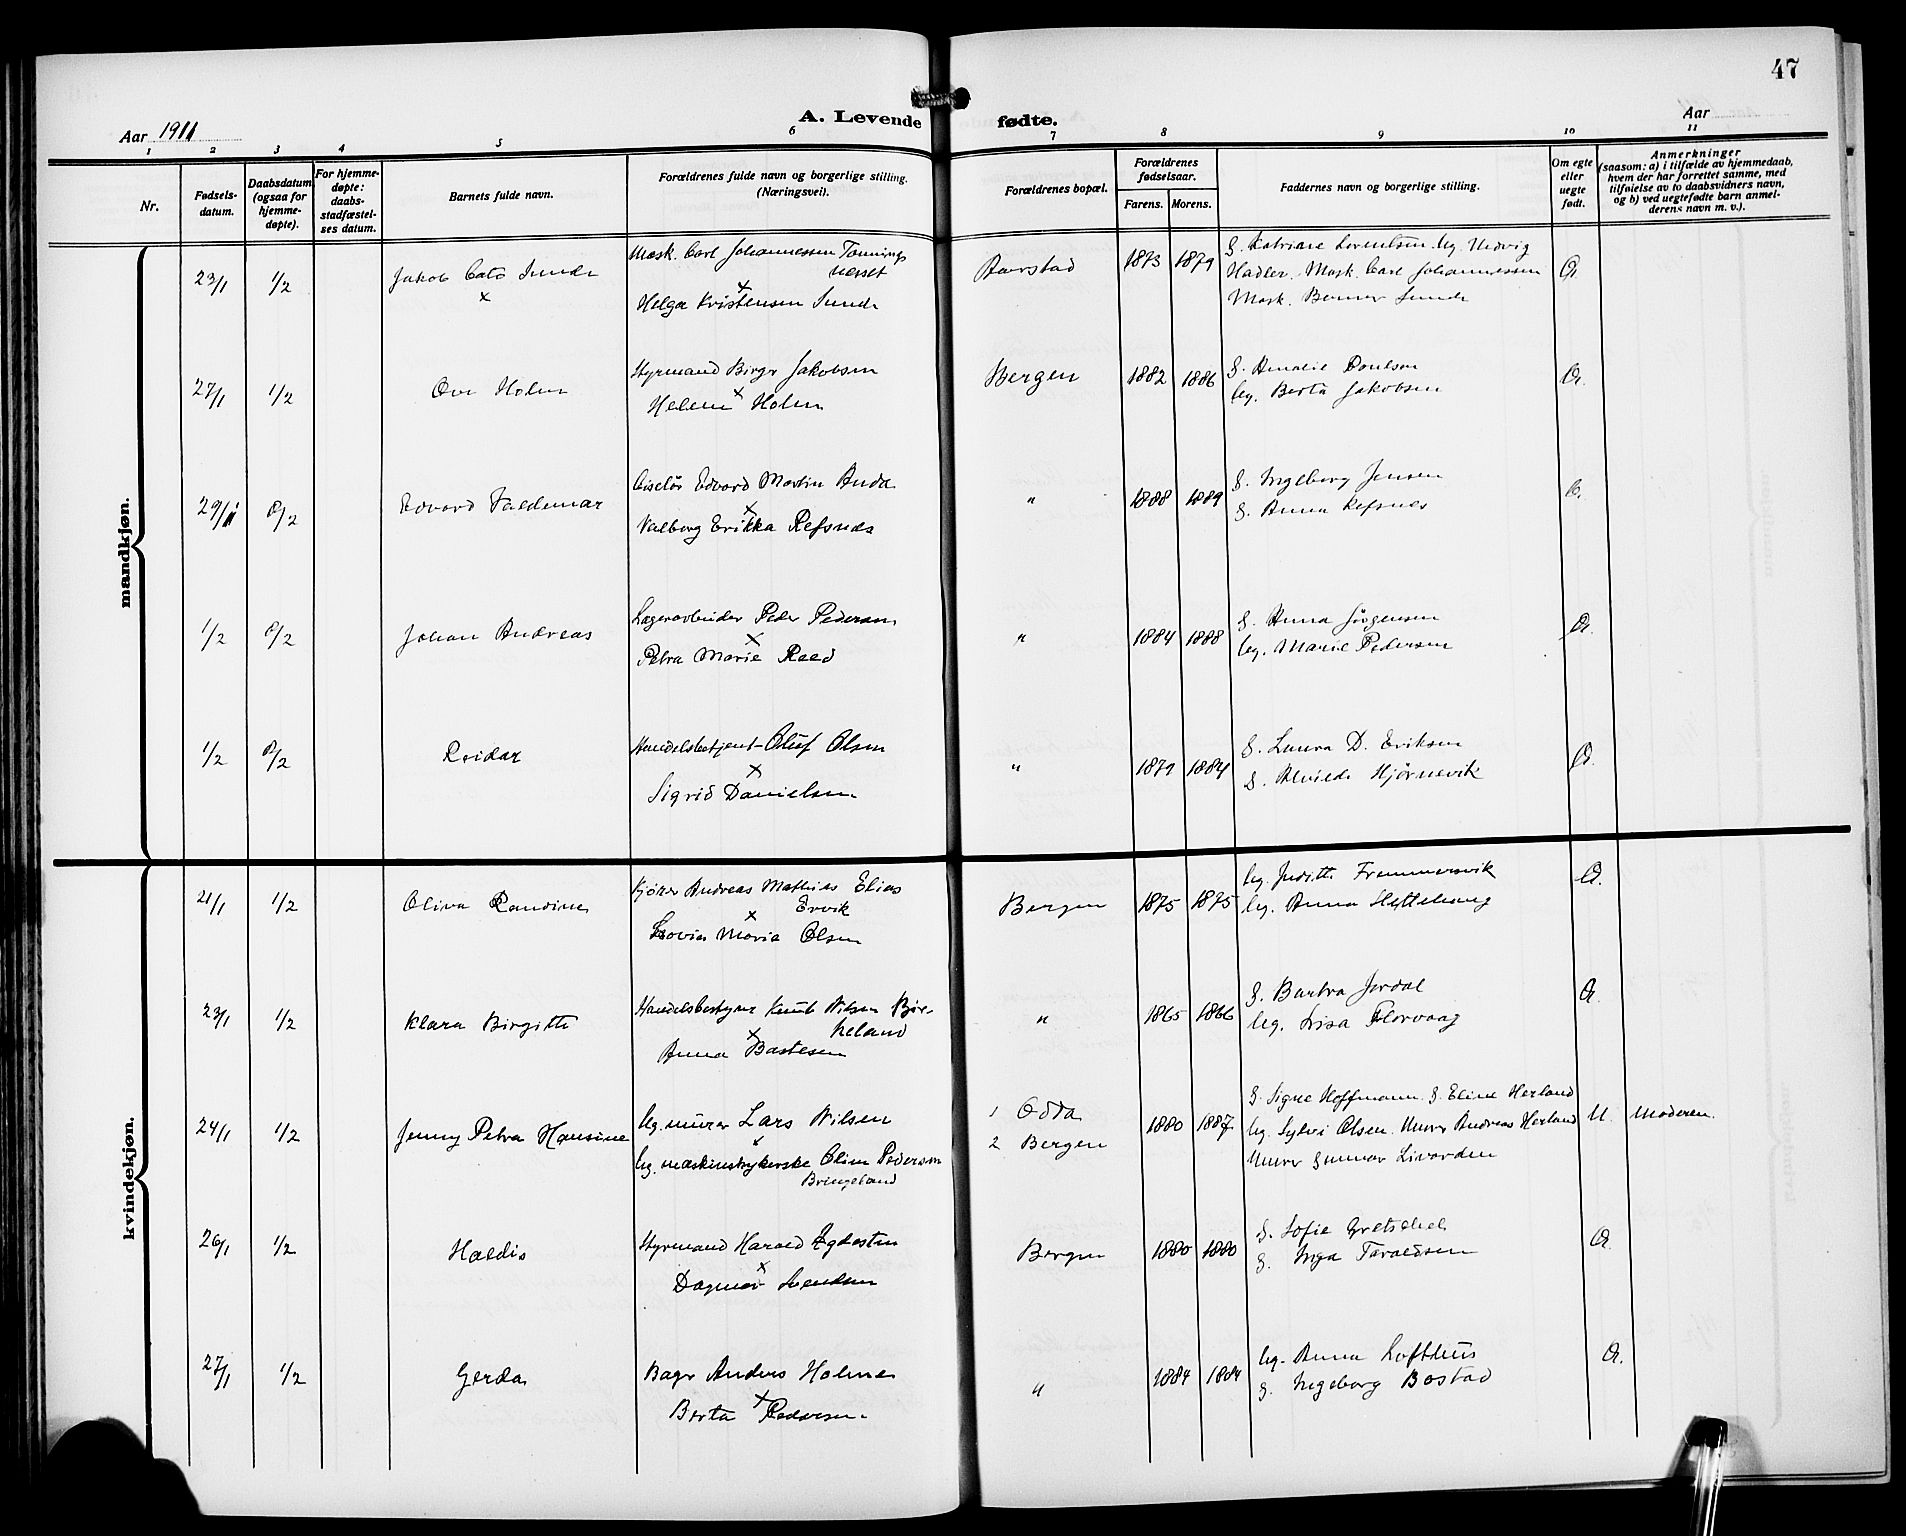 47
Aar 1911
A. Levende fødte.
Aar
1 2 3 4 5 6 7 8 9 10 11
Nr.
Fødsels-
datum.
Daabsdatum
(ogsaa for
hjemme-
døpte).
For hjemme-
døpte:
daabs-
stadfæstel-
ses datum.
Barnets fulde navn.
Forældrenes fulde navn og borgerlige stilling.
(Næringsvei).
Forældrenes bopæl.
Forældrenes
fødselsaar.
Farens. Morens.
Faddernes navn og borgerlige stilling.
Om egte
eller
uegte
født.
Anmerkninger
(saasom: a) i tilfælde av hjemmedaab,
hvem der har forrettet samme, med
tilføielse av to daabsvidners navn,
og b) ved uegtefødte barn anmel-
derens navn m. v.).
mandkjøn.
23/1 1/2 Jakob Cato Sunde
x
Mask. Carl Johannessen Tønnings
neset
x
Helga Kristensen Sunde
Aarstad 1873 1879
Lorentsen. Ug. Hedvig
Hadler. Mask. Carl Johannessen
Mask. Sunde
27/1 1/2 Ove Holm
Styrmand Birger Jakobsen
x
Helene Holm
Bergen 1882 1886
G. Amalie Poulson
Ug. Berta Jakobsen
29/1 8/2 Edvard Valdemar
Ciselør Edvard Martin Anda
x
Valborg Erikka Refsnes
" 1888 1889
G. Ingeborg Jensen
G. Anna Refsnes
1/2 8/2 Johan Andreas
Lagerarbeider Peder Pedersen
x
Petra Marie Raed
" 1884 1888
G. Anna Jørgensen
Ug. Marie Pedersen
1/2 8/2 Reidar
Handelsbetjent Oluf Olsen
x
Sigrid Danielsen
" 1879 1884
G. Laura D. Eriksen
G. Alvilde Hjørnevik
kvindekjøn.
21/1 1/2 Oliva Randine
Kjører Andreas Mathias Elias
Ervik
x
Lovise Marie Olsen
Bergen 1875 1875
Ug. Judith Frammersvik
Ug. Anna
Æ.
23/1 1/2 Klara Birgitte
Handelsbestyrer Knut Nilsen Bir-
keland
x
Anna Bastesen
" 1865 1866
G. Barbra Jordal
Ug. Lisa Florvaag
24/1 1/2 Jenny Petra Hansine
Ug. murer Lars Nilsen
Ug. maskinstrykerske Oline Pedersen
Bringeland
1 Odda
2 Bergen
1880 1887
G. Signe Hoffmann. G. Eline Herland
Ug. Sylvi Olsen. Murer Andreas Herland
Murer Gunnar Livarden
U. Moderen.
26/1 1/2 Haldis
Styrmand Harald Egdesten
x
Dagmar Svendsen
Bergen 1880 1880
G. Sofie Gretschel
G. Inga Taraldsen
27/1 1/2 Gerda
Bager Anders Holme
x
Berta Pedersen
" 1884 1884
Ug. Anna Lofthus
G. Ingeborg Bostad